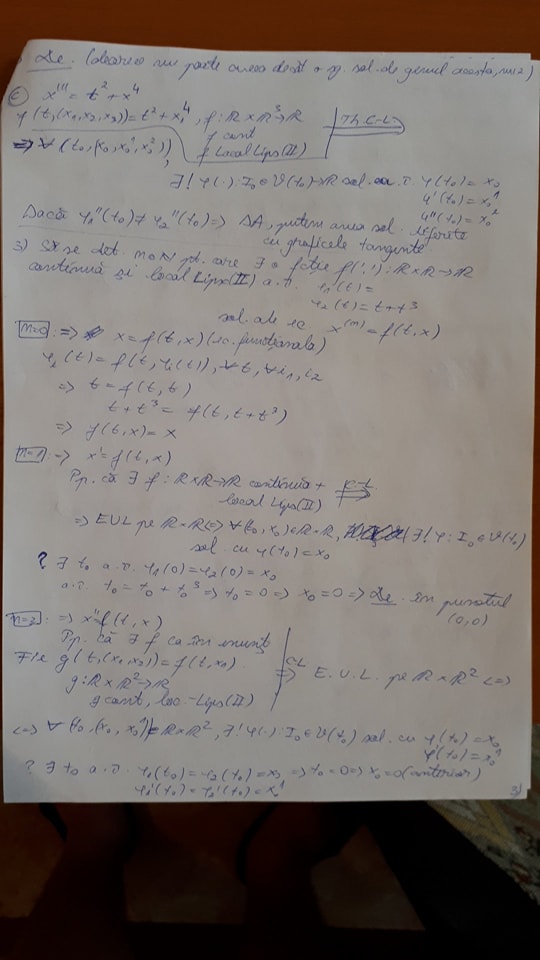 De. (deoarece nu poate avea decât o sg. sol. de genul acesta,
x''' = t² + x⁴
f(t,(x₁,x₂,x₃)) = t² + x₁⁴, f: ℝ×ℝ³→ℝ
f cont
f Local Lips(II)
Th. C-L
=> ∀ (t₀,(x₀,x₀¹,x₀²)),
∃! φ(·): I₀∈V(t₀)→ℝ sol. a.î. φ(t₀) = x₀
φ'(t₀) = x₀¹
φ''(t₀) = x₀²
Dacă φ₁''(t₀) ≠ φ₂''(t₀) => DA, putem avea sol. diferite
cu graficele tangente.
3) Să se det. n∈ℕ pt. care ∃ o fcție f(·,·): ℝ×ℝ→ℝ
continuă și local Lips(II) a.î. φ₁(t) =
φ₂(t) = t+t³
sol. ale ec x⁽ⁿ⁾ = f(t,x)
n=0 => x = f(t,x) (ec. funcțională)
φᵢ(t) = f(t, φᵢ(t)), ∀t, ∀i=1,2
=> t = f(t,t)
t + t³ = f(t, t+t³)
=> f(t,x) = x
n=1 => x' = f(t,x)
Pp. că ∃ f: ℝ×ℝ→ℝ continuă +
local Lips(II)
C-L
=> EUL pe ℝ×ℝ <=> ∀(t₀,x₀)∈ℝ×ℝ, ∃! φ: I₀∈V(t₀)
sol. cu φ(t₀) = x₀
? ∃ t₀ a.î. φ₁(0) = φ₂(0) = x₀
a.î. t₀ = t₀ + t₀³ => t₀ = 0 => x₀ = 0 => De. în punctul
(0,0)
n=2 => x'' = f(t,x)
Pp. că ∃ f ca în enunț
Fie g(t,(x₁,x₂)) = f(t,x₁)
g: ℝ×ℝ²→ℝ
g cont, loc-Lips(II)
CL
=> E.U.L. pe ℝ×ℝ² <=>
<=> ∀ (t₀,(x₀,x₀¹))∈ℝ×ℝ², ∃! φ(·): I₀∈V(t₀) sol. cu φ(t₀) = x₀
φ'(t₀) = x₀¹
? ∃ t₀ a.î. φ₁(t₀) = φ₂(t₀) = x₀ => t₀ = 0 => x₀ = 0 (anterior)
φ₁'(t₀) = φ₂'(t₀) = x₀¹
3)